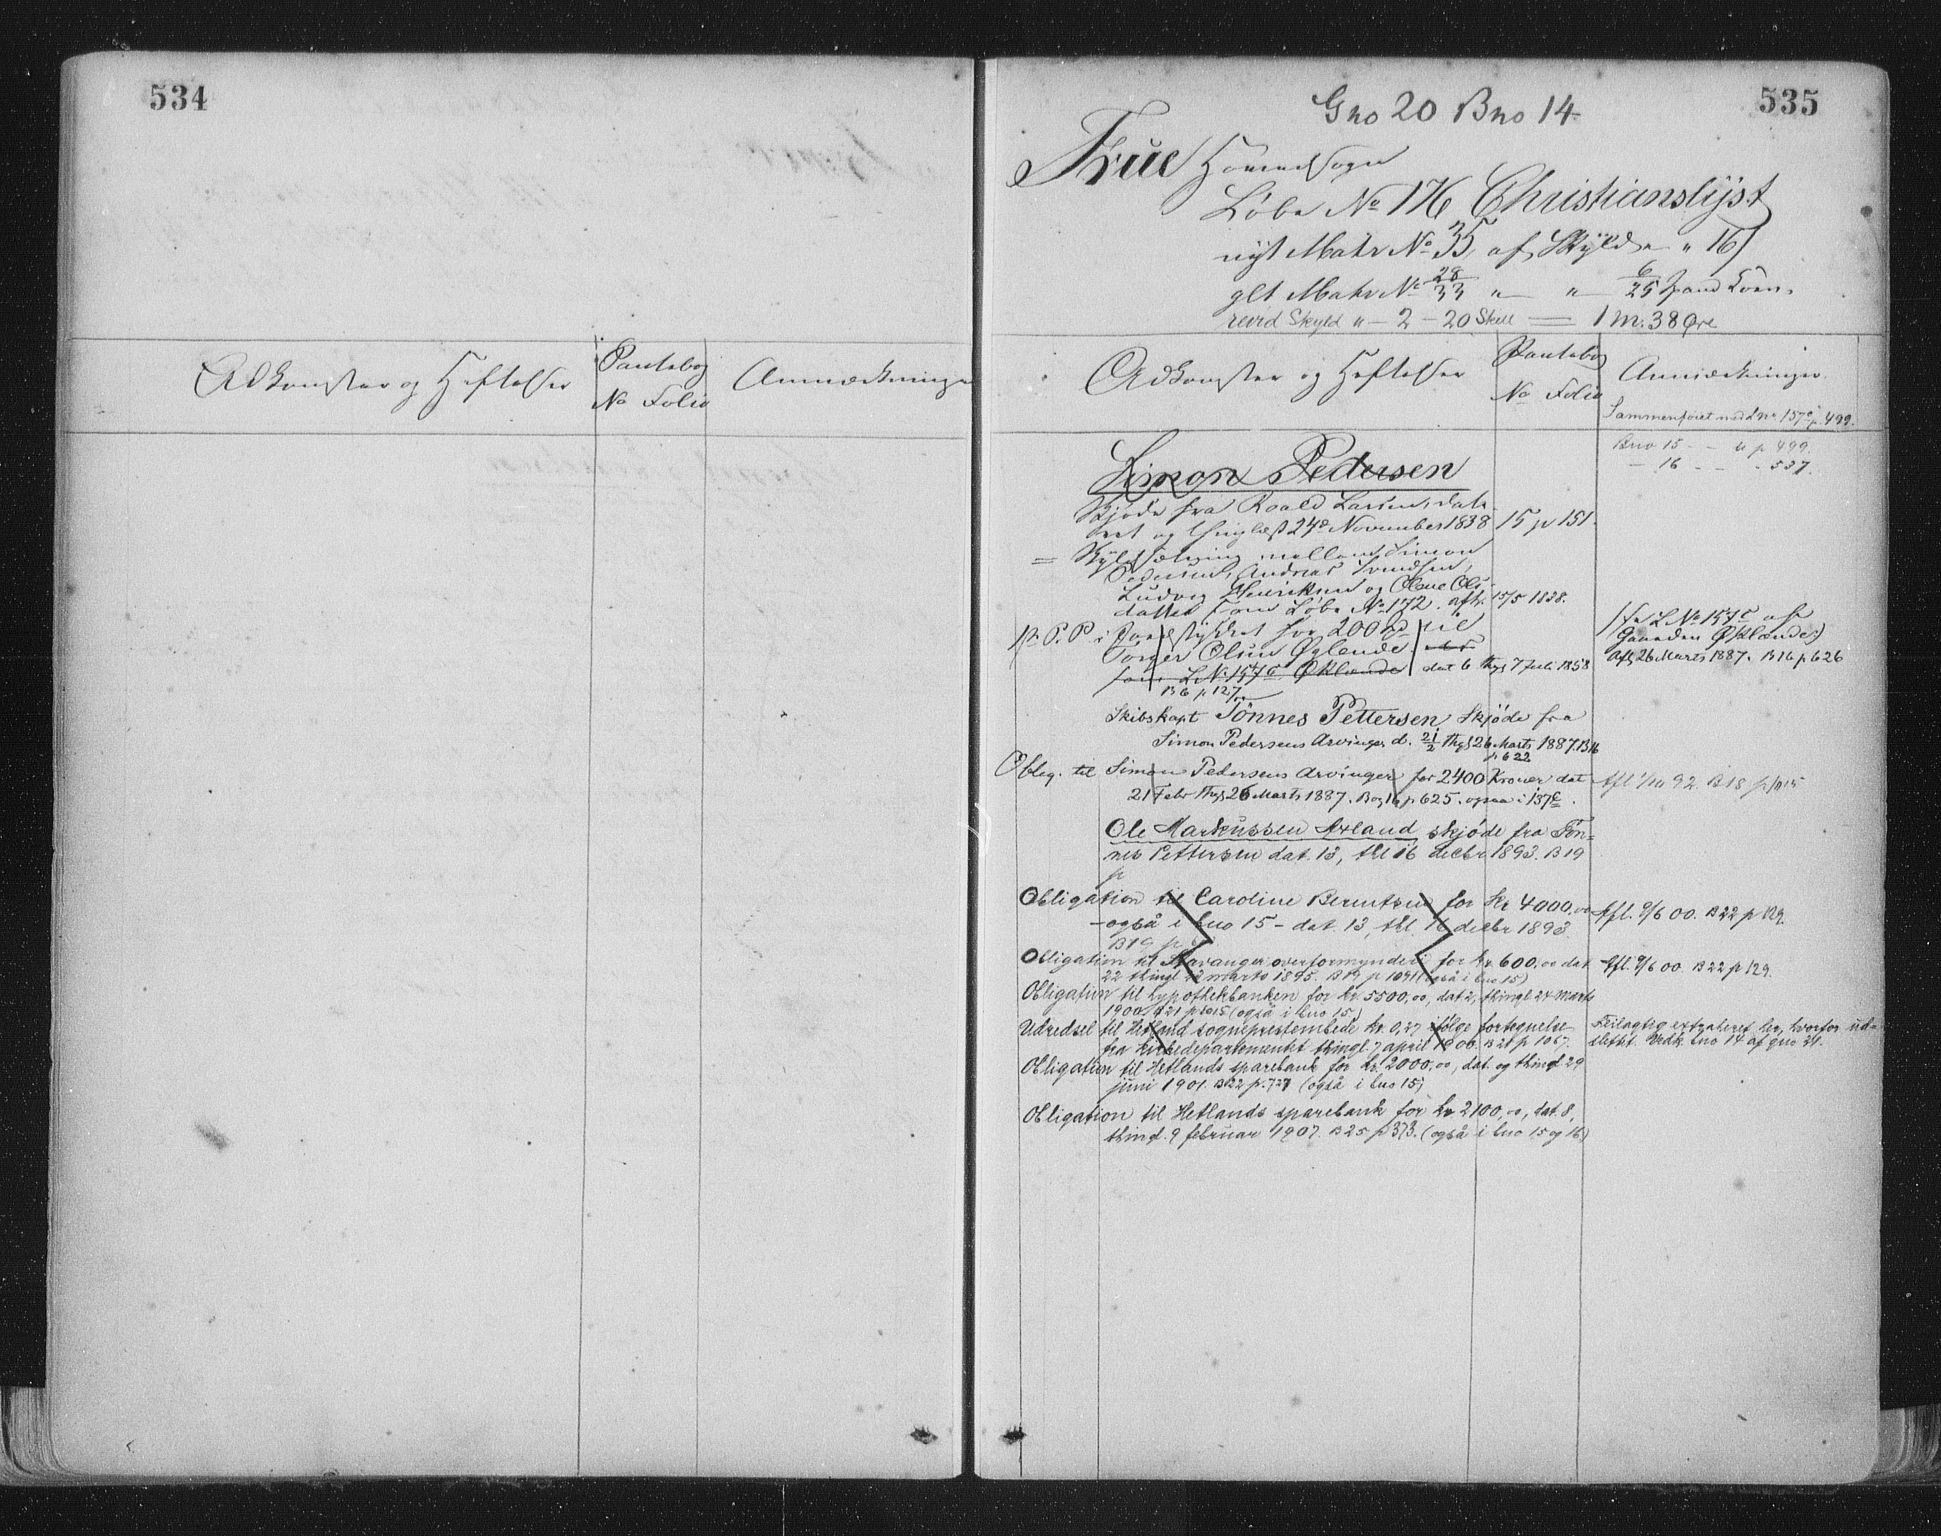 534
Adkomster og Heftelser
Pantebog
No Folio
Anmærkninger
535
Gno 20 Bno 14
Frue Hovedsogn
Løbe No 176 Christianslyst
nyt Matr No 35 af Skyld " - " 16 /
glt Matr No 28/33 " — " — 6/25 Spand Korn.
revid Skyld " - 2 - 20 Skill = 1 M. 38 Øre
Adkomster og Heftelser
Pantebog
No Folio
Anmærkninger.
Sammenføiet med Lno 157c p. 499.
Bno 15 - - p 499.
- 16 - - - 537.
Simon Pedersen
Skjøde fra Roald Larsen, date-
ret og thinglæst 24de November 1838 15 p 151.
= Skyldsætning mellem Simon
Pedersen, Andreas Svendsen,
Ludvig Henriksen og Olene Ols-
datter som Løbe No 172. afh. 15/5 1838.
P. P. i Jordstykket for 200 Spd til
Torger Olsen Øglende
som L No 157c Øklende dat 6 thgl 7 Juli 1858
B 6 p 127
/ fra L No 157c af
Gaarden Øklende /
Afl 26 Marts 1887. B 16 p 626
Skibskapt Tönnes Pettersen Skjöde fra
Simon Pedersens Arvinger d. 21/2 thgl 26 Marts 1887. B 16
p 622
Oblig. til Simon Pedersens Arvinger for 2400 Kroner dat
21 Febr thgl 26 Marts 1887. Bog 16 p 625. ogsaa i 157c.
Ole Markussen Axland skjøde fra Tön-
nes Pettersen dat. 13, thl 16 decbr 1893. B 19
p
Obligation til Caroline Berentsen for Kr 4000,00
- også i bno 15 - dat. 13, thl. 16 decbr 1893.
B 19 p
Afl. 9/6 00. B 22 p 129.
Obligation til Stavanger overformynderi for kr. 600,00 dat
22 thingl 23 marts 1895. B 19 p 1041 (også i bno 15)
Afl. 9/6 00. B 22 p 129.
Obligation til Hypothekbanken for kr 5500,00, dat 2, thingl 24 marts
1900. B 21 p 1015 (også i bno 15)
Udredsel til Hetland sogneprestembede kr. 0,27 ifølge fortegnelse
fra kirkedepartementet thingl. 7 april 1900. B 21 p 1067.
Feilagtig extraheret her, hvorfor ud-
slettet. Vedk. bno 14 af gno 21.
Obligation til Hetlands sparebank for kr. 2000,00, dat. og thingl 29
juni 1901. B 22 p. 727 (også i bno 15)
Obligation til Hetlands sparebank for kr 2100,00, dat. 8,
thingl. 9 februar 1907. B 25 p 373. (også i bno 15 og 16)